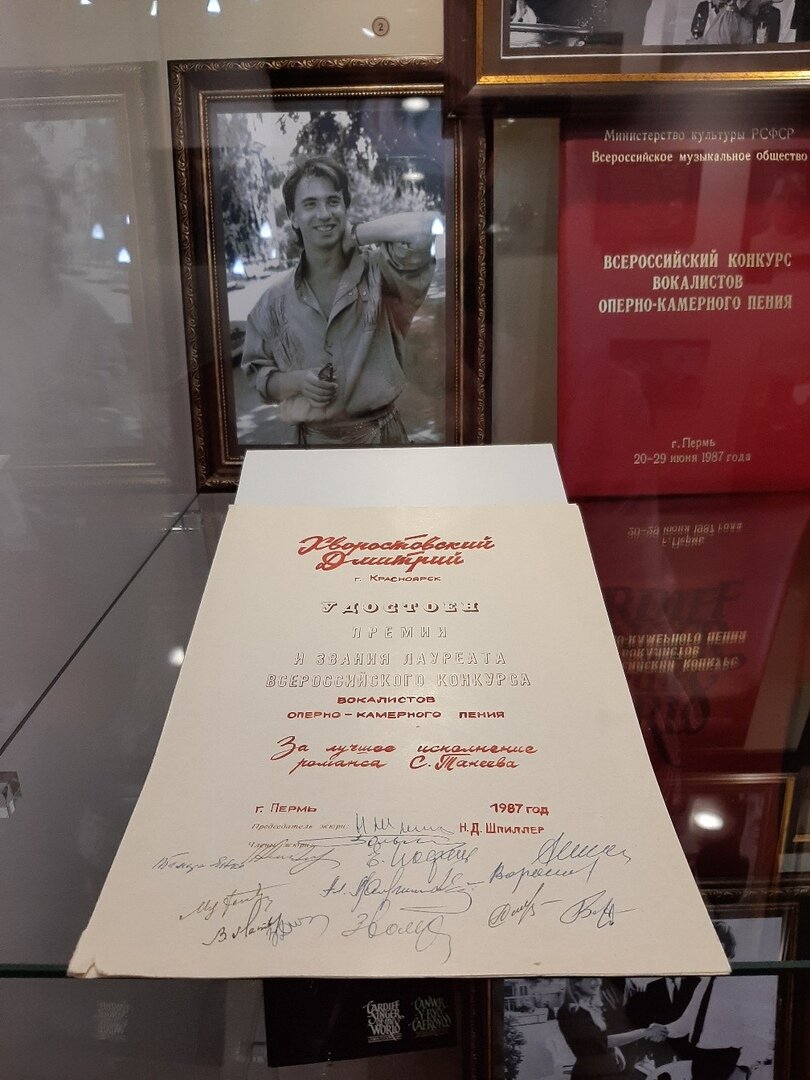 2
Министерство культуры РСФСР
Всероссийское музыкальное общество
ВСЕРОССИЙСКИЙ КОНКУРС
ВОКАЛИСТОВ
ОПЕРНО-КАМЕРНОГО ПЕНИЯ
г. Пермь
20-29 июня 1987 года
Хворостовский
Дмитрий
г. Красноярск
УДОСТОЕН
ПРЕМИИ
И ЗВАНИЯ ЛАУРЕАТА
ВСЕРОССИЙСКОГО КОНКУРСА
ВОКАЛИСТОВ
ОПЕРНО-КАМЕРНОГО ПЕНИЯ
За лучшее исполнение
романса С. Танеева
г. Пермь 1987 год
Председатель жюри: Н.Д. Шпиллер
Члены жюри:
CARDIFF
SINGER
OF THE
WORLD
CANWR
Y BYD
CAERDYDD